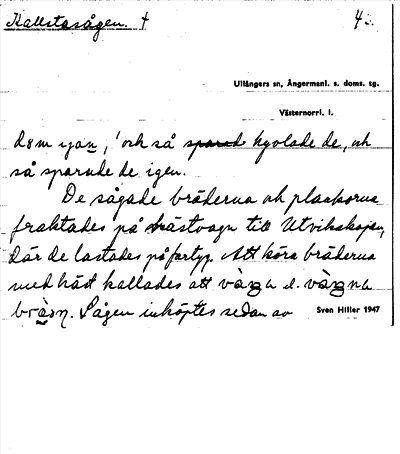 Kallstasågen. †
4
Ullångers sn, Ångermanl. s. doms. tg.
Västernorrl. l.
dem igan, ! och så kyolade de, och
så sparkade de igen.
De sågade bräderna och plankorna
fraktades på hästvagn till Utvikskajen,
där de lastades på fartyg. Att köra bräderna
med häst kallades att
Sågen inköptes sedan av
Sven Hiller 1947